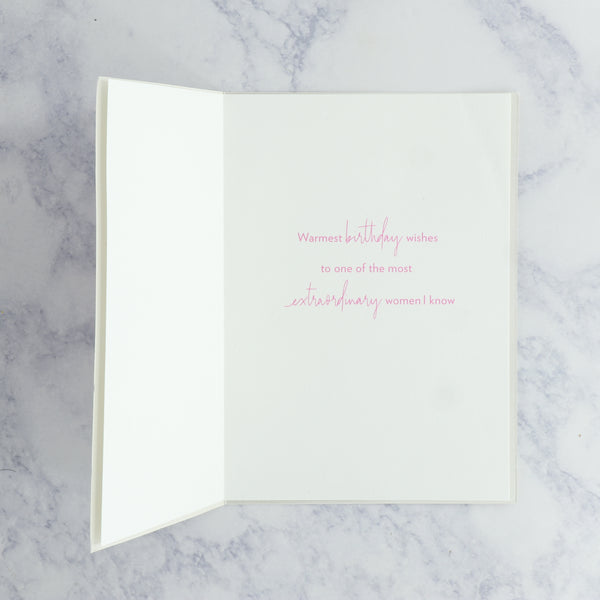 Warmest birthday wishes
to one of the most
extraordinary women I know